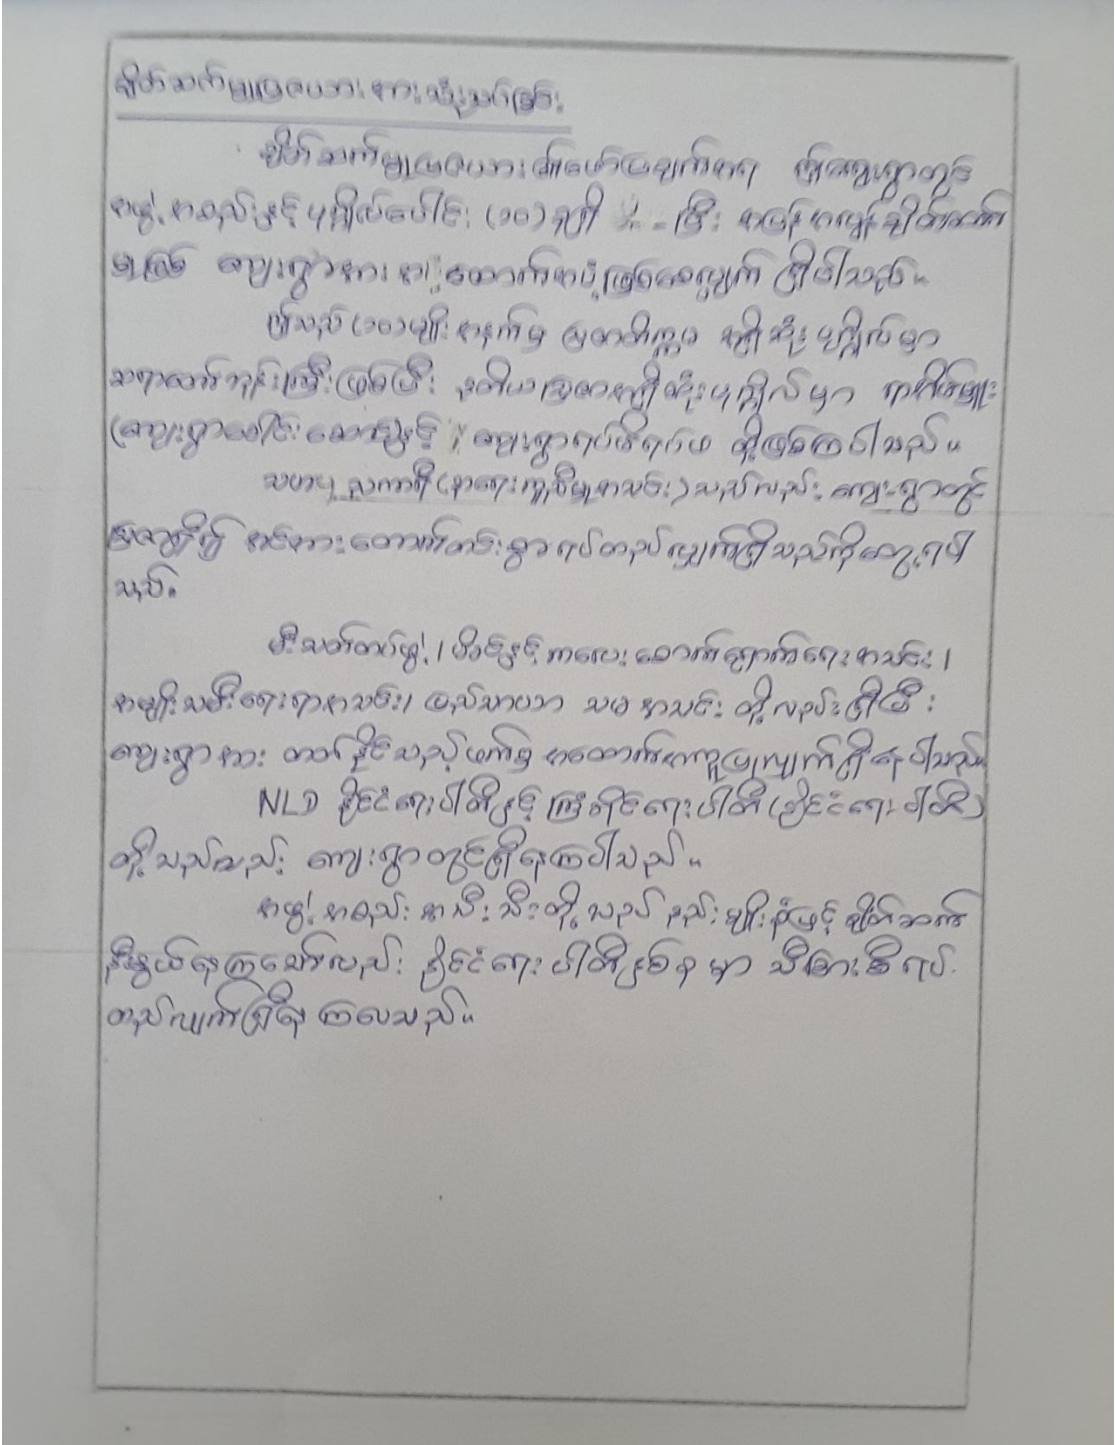 ချိတ်ဆက်မှုပြဇယားအားသုံးသပ်ခြင်း
ချိတ်ဆက်မှုပြဇယား ဖော်ပြချက်အရ ဤကျေးရွာတွင်
အဖွဲ့အစည်းနှင့်ပုဂ္ဂိုလ်ပေါင်း (၁၀) ရှိပြီး အပြန်အလှန်ချိတ်ဆက်
မှုဖြင့် ကျေးရွာအား အထောက်အပံ့ဖြစ်စေလျှက် ရှိပါသည်။
ဤသည် (၁၀)မျိုးအနက်မှ ဩဇာတိက္ကမ အရှိဆုံး ပုဂ္ဂိုလ်မှာ
ဆရာတော်ဘုန်းကြီးဖြစ်ပြီး ဒုတိယဩဇာအရှိဆုံးပုဂ္ဂိုလ်မှာ ရာအိမ်မှူး
(ကျေးရွာခေါင်းဆောင်)နှင့် ကျေးရွာရပ်မိရပ်ဖ တို့ဖြစ်ကြပါသည်။
သဟာယ သုခကာရီ (နာရေးကူညီမှုအသင်း) သည်လည်း ကျေးရွာတွင်
ဩဇာရှိ၍ အင်အားတောင့်တင်းစွာ ရပ်တည်လျှက်ရှိသည်ကိုတွေ့ရပါ
သည်။
မီးသတ်တပ်ဖွဲ့၊ မိခင်နှင့်ကလေး စောင့်ရှောက်ရေးအသင်း၊
အမျိုးသမီးရေးရာအသင်း၊ ပြည်သာယာ သမအသင်း တို့လည်းရှိပြီး
ကျေးရွာအား တတ်နိုင်သည့်ဖက်မှ အထောက်အကူပြုလျှက်ရှိနေပါသည်။
NLD နိုင်ငံရေးပါတီနှင့် ကြံ့ခိုင်ရေးပါတီ (နိုင်ငံရေးပါတီ)
တို့သည်လည်း ကျေးရွာတွင်ရှိနေကြပါသည်။
အဖွဲ့အစည်းအသီးသီးတို့သည် နည်းမျိုးစုံဖြင့် ချိတ်ဆက်
နီးနွယ်နေကြသော်လည်း နိုင်ငံရေးပါတီနှစ်ခုမှာ သီးခြားစီ ရပ်
တည်လျှက်ရှိနေကြလေသည်။